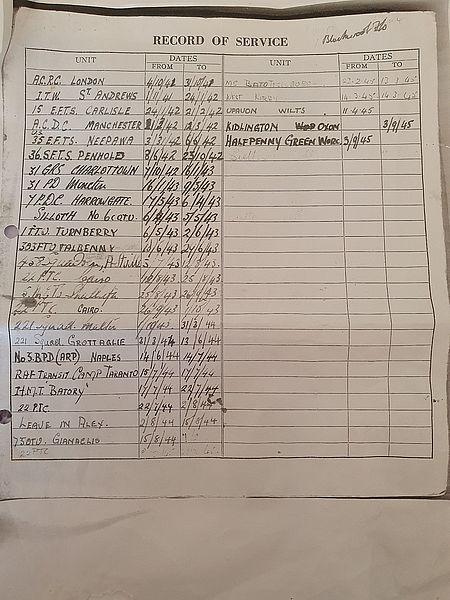 RECORD OF SERVICE
UNIT DATES FROM TO
A.C.R.C. LONDON 4/10/41 31/10/41
I.T.W. ST ANDREWS 1/11/41 24/1/42
15 E.F.T.S. CARLISLE 24/1/42 21/2/42
A.C.D.C. MANCHESTER 21/2/42 12/3/42
35 E.F.T.S. NEEPAWA 3/3/42 6/6/42
36 S.F.T.S. PENHOLD 8/6/42 25/10/42
31 GRS CHARLOTTOWN 7/10/42 6/1/43
31 PD Moncton 16/1/43 9/5/43
7 PDC HARROWGATE. 7/5/43 6/4/43
SILLOTH No 6 COTU. 5/5/43
1 TTU. TURNBERRY 6/5/43 2/6/43
303 FTU TALBENNY 10/6/43 24/6/43
22 P.T.C. Cairo 10/8/43 25/8/43
25/8/43
P.T.C. CAIRO. 26/9/43 1/10/43
221 Squad. Malta 1/10/43 31/3/44
221 Squad. GROTTAGLIE 31/3/44 13/6/44
No 3. B.P.D (ARP) NAPLES 14/6/44 14/7/44
RAF TRANSIT CAMP TARANTO 15/7/44 17/7/44
H.M.T. BATORY 17/7/44 22/7/44
22 PTC 22/7/44 2/8/44
LEAVE IN ALEX. 2/8/44 15/8/44
75 OTU. GIANACLIS 15/8/44
22 PTC
UNIT DATES FROM TO
WEST KIRBY 14.3.45
UPAVON WILTS 11.4.45
KIDLINGTON OXON 3/9/45
HALFPENNY GREEN WORC. 3/9/45